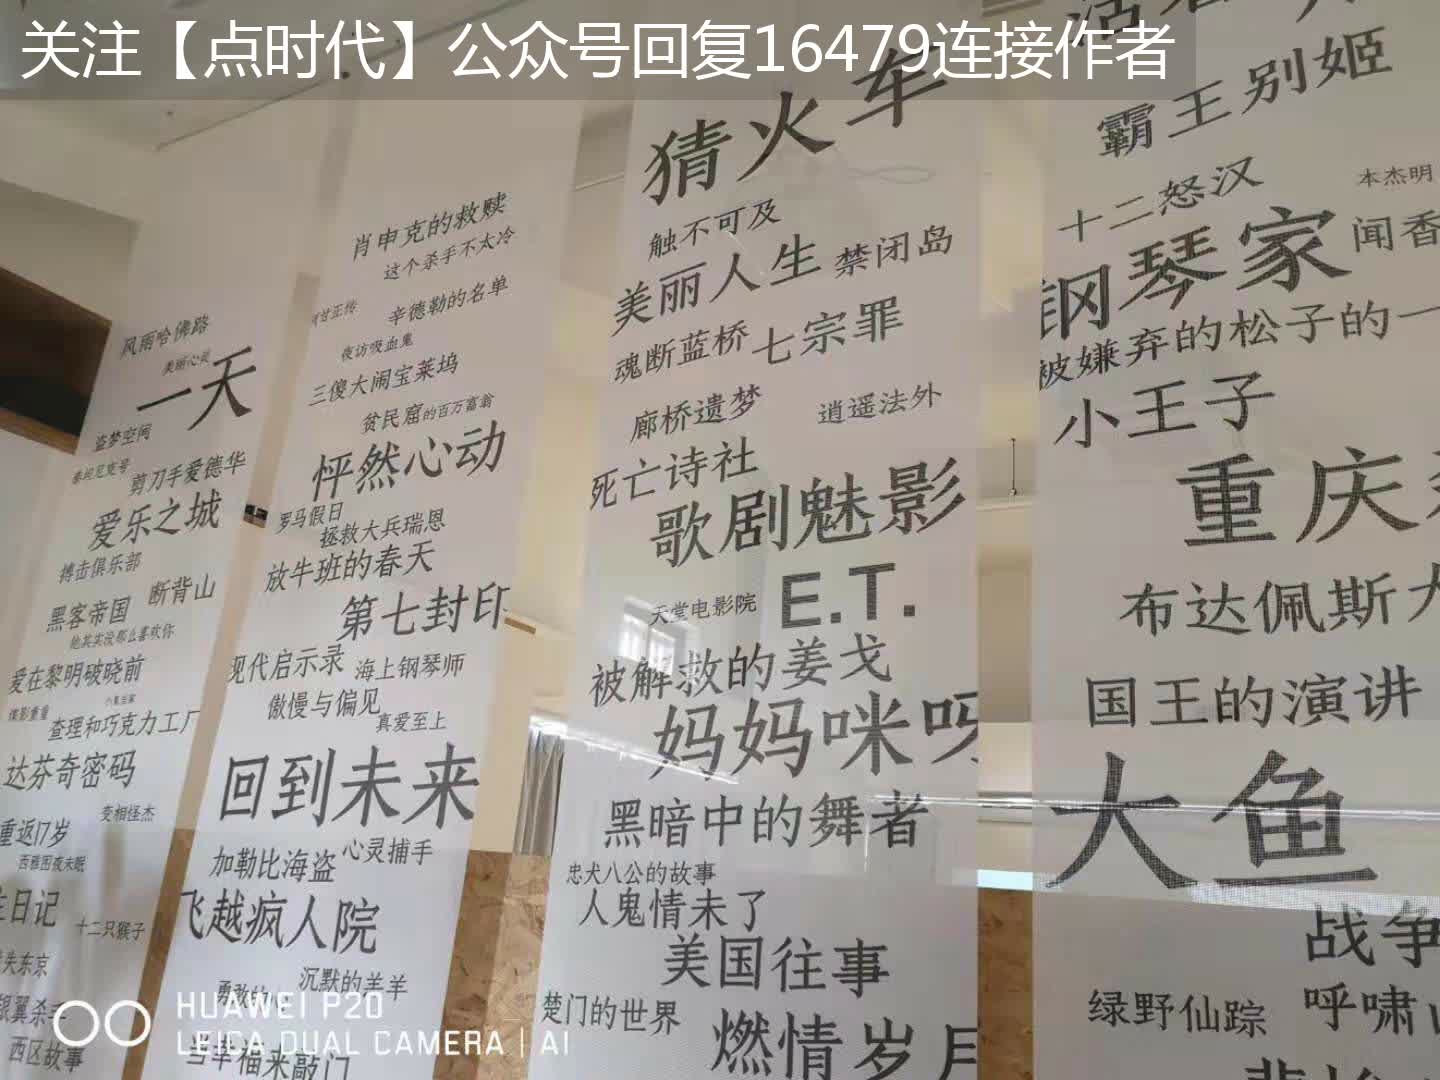 关注【点时代】公众号回复16479连接作者
风雨哈佛路
美丽心灵
一天
盗梦空间
泰坦尼克号
剪刀手爱德华
爱乐之城
搏击俱乐部
断背山
黑客帝国
他其实没那么喜欢你
爱在黎明破晓前
查理和巧克力工厂
达芬奇密码
变相怪杰
重返17岁
西雅图夜未眠
日记
十二只猴子
失东京
银翼杀手
西区故事
肖申克的救赎
这个杀手不太冷
阿甘正传
辛德勒的名单
夜访吸血鬼
三傻大闹宝莱坞
贫民窟的百万富翁
怦然心动
罗马假日
拯救大兵瑞恩
放牛班的春天
第七封印
现代启示录
海上钢琴师
傲慢与偏见
真爱至上
回到未来
心灵捕手
加勒比海盗
飞越疯人院
沉默的羔羊
勇敢的心
当幸福来敲门
猜火车
触不可及
美丽人生
禁闭岛
魂断蓝桥
七宗罪
廊桥遗梦
逍遥法外
死亡诗社
歌剧魅影
天堂电影院
E.T.
被解救的姜戈
妈妈咪呀
黑暗中的舞者
忠犬八公的故事
人鬼情未了
美国往事
楚门的世界
燃情岁月
霸王别姬
十二怒汉
本杰明
钢琴家
闻香
被嫌弃的松子的一
小王子
重庆
布达佩斯大
国王的演讲
大鱼
战争
绿野仙踪
呼啸山
HUAWEI P20
LEICA DUAL CAMERA | AI